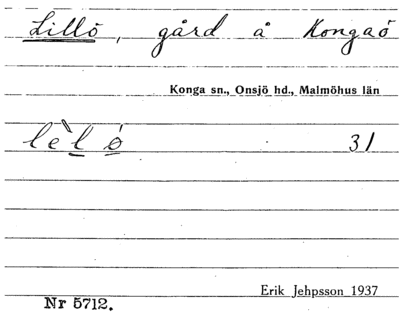 Lillö, gård å Kongaö
Konga sn., Onsjö hd., Malmöhus län
lèl ó 31
Erik Jehpsson 1937
Nr 5712.